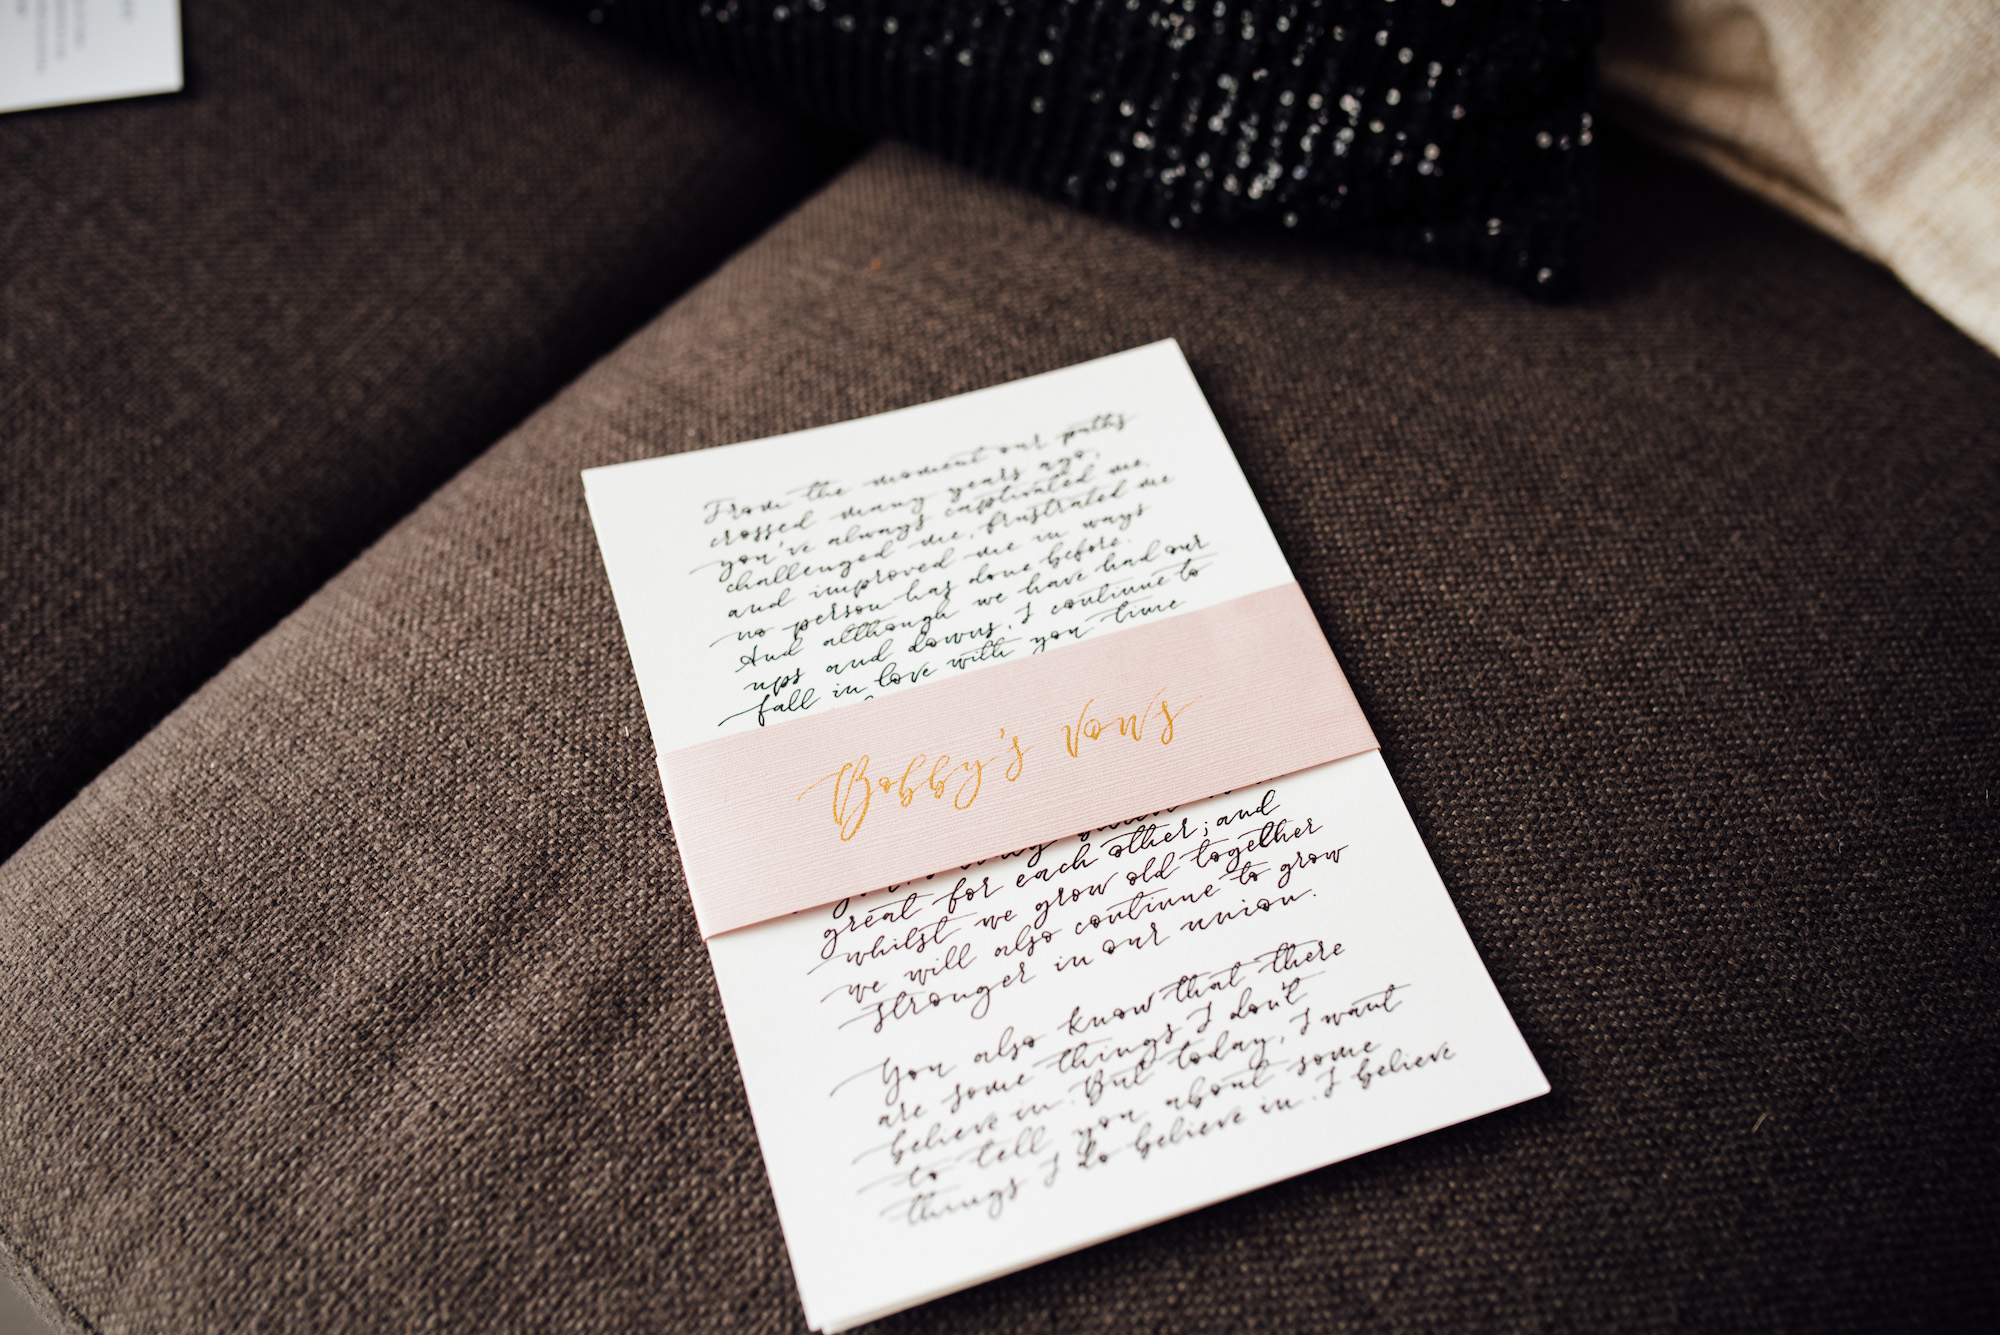 From the moment our paths
crossed many years ago,
you've always captivated me,
challenged me, frustrated me
and improved me in ways
no person has done before.
And although we have had our
ups and downs, I continue to
fall in love with you time
Bobby's Vows
great for each other; and
whilst we grow old together
we will also continue to grow
stronger in our union.
You also know that there
are some things I don't
believe in. But today, I want
to tell you about some
things I do believe in. I believe